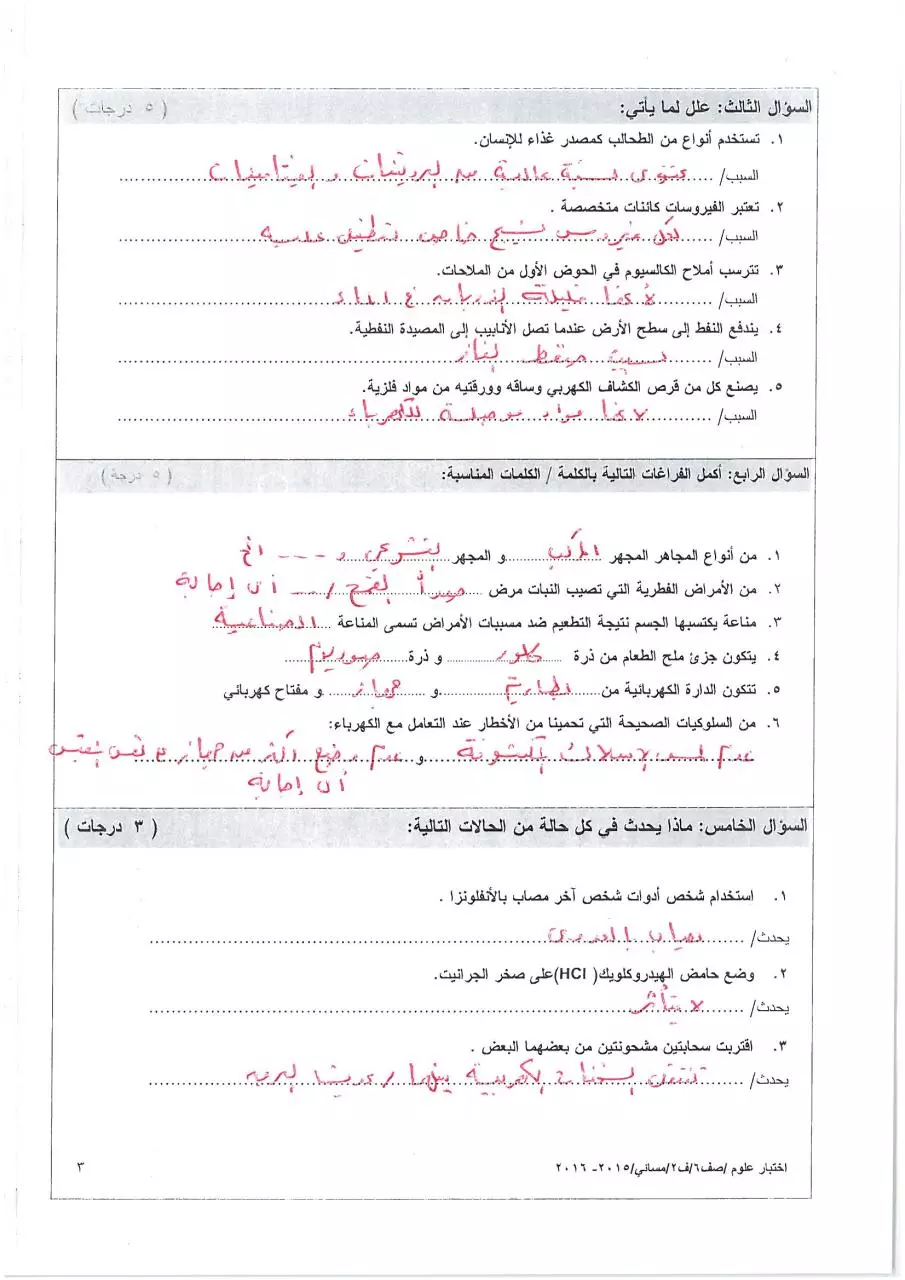 السؤال الثالث: علل لما يأتي: ( ٥ درجات )
١. تستخدم أنواع من الطحالب كمصدر غذاء للإنسان.
السبب/ تحتوي نسبة عالية من البروتينات و الفيتامينات
٢. تعتبر الفيروسات كائنات متخصصة .
السبب/ لكل فيروس نسيج خاص يتطفل عليه
٣. تترسب أملاح الكالسيوم في الحوض الأول من الملاحات.
السبب/ لأنها قليلة الذوبان في الماء
٤. يندفع النفط إلى سطح الأرض عندما تصل الأنابيب إلى المصيدة النفطية.
السبب/ بسبب ضغط الغاز
٥. يصنع كل من قرص الكشاف الكهربي وساقه وورقتيه من مواد فلزية.
السبب/ لانها مواد موصلة للكهرباء
السؤال الرابع: أكمل الفراغات التالية بالكلمة / الكلمات المناسبة: ( ٥ درجة )
١. من أنواع المجاهر المجهر المركب و المجهر التشريحي و --- الخ
٢. من الأمراض الفطرية التي تصيب النبات مرض صدأ القمح / --- أي إجابة
٣. مناعة يكتسبها الجسم نتيجة التطعيم ضد مسببات الأمراض تسمى المناعة الصناعية
٤. يتكون جزئ ملح الطعام من ذرة كلور و ذرة صوديوم
٥. تتكون الدارة الكهربائية من بطارية و جهاز و مفتاح كهربائي
٦. من السلوكيات الصحيحة التي تحمينا من الأخطار عند التعامل مع الكهرباء:
عدم لمس الإسلاك المكشوفة و عدم وضع أكثر من جهاز في نفس القبس
أي إجابة
السؤال الخامس: ماذا يحدث في كل حالة من الحالات التالية: ( ٣ درجات )
١. استخدام شخص أدوات شخص آخر مصاب بالأنفلونزا .
يحدث/ يصاب بالعدوى
٢. وضع حامض الهيدروكلويك( HCl)على صخر الجرانيت.
يحدث/ لا يتأثر
٣. اقتربت سحابتين مشحونتين من بعضهما البعض .
يحدث/ تنتقل الشحنات الكهربية بينهما / يحدث البرق
اختبار علوم /صف٦/ف٢/مسائي/٢٠١٥- ٢٠١٦ ٣